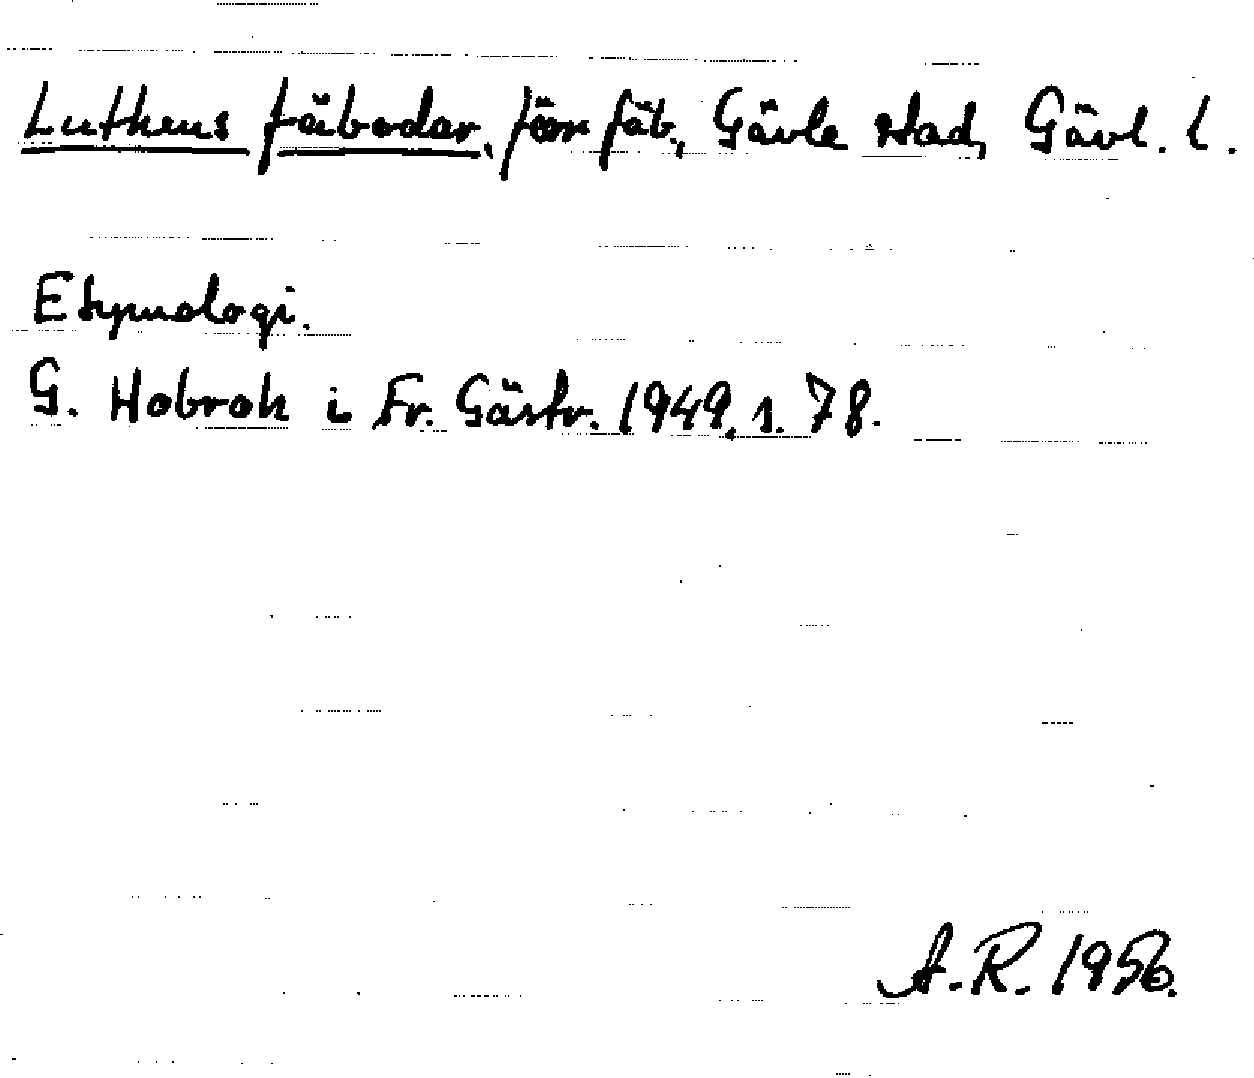 Luthens fäbodar, förr fäb., Gävle stad, Gävl. l.
Etymologi.
G. Hobroh i Fr. Gästr. 1949, 1. 78.
A.R. 1956.